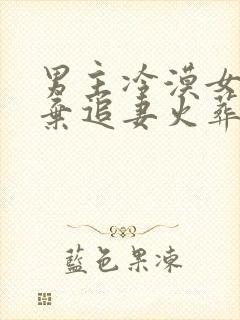 男主冷漠女
弃追妻火葬
藍色果凍